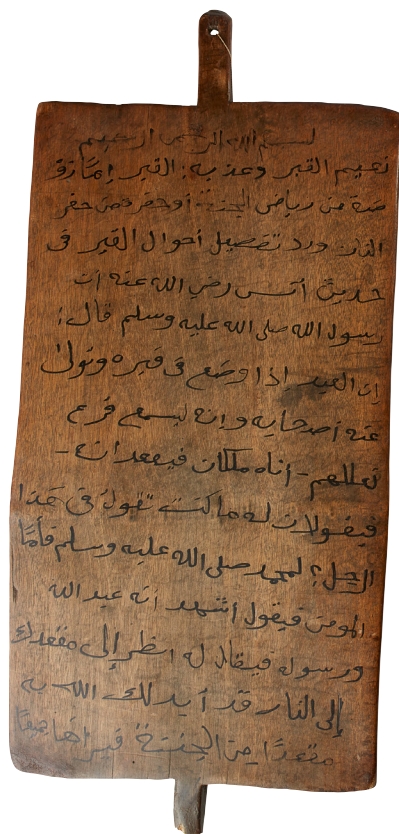 بسم الله الرحمن الرحيم
نعيم القبر وعذبه: القبر إمّا رو
ضة من رياض الجنة أو حفر من حفر
النار ورد تفصيل أحوال القبر فى
حديث أنس رضي الله عنه أن
رسول الله صلى الله عليه وسلم قال:
إن العبد اذا وضع فى قبره وتولى
عنه أصحابه وإنه ليسمع قرع
نعالهم - أتاه ملكان فيقعدانه -
فيقولان له ما كنت تقول فى هذا
الرجل؟ لمحمد صلى الله عليه وسلم فأمّا
المومن فيقول أشهد أنه عبد الله
ورسوله فيقال له انظر إلى مقعدك
إلى النار قد أبدلك الله به
مقعدًا من الجنة فيراهما جميعًا